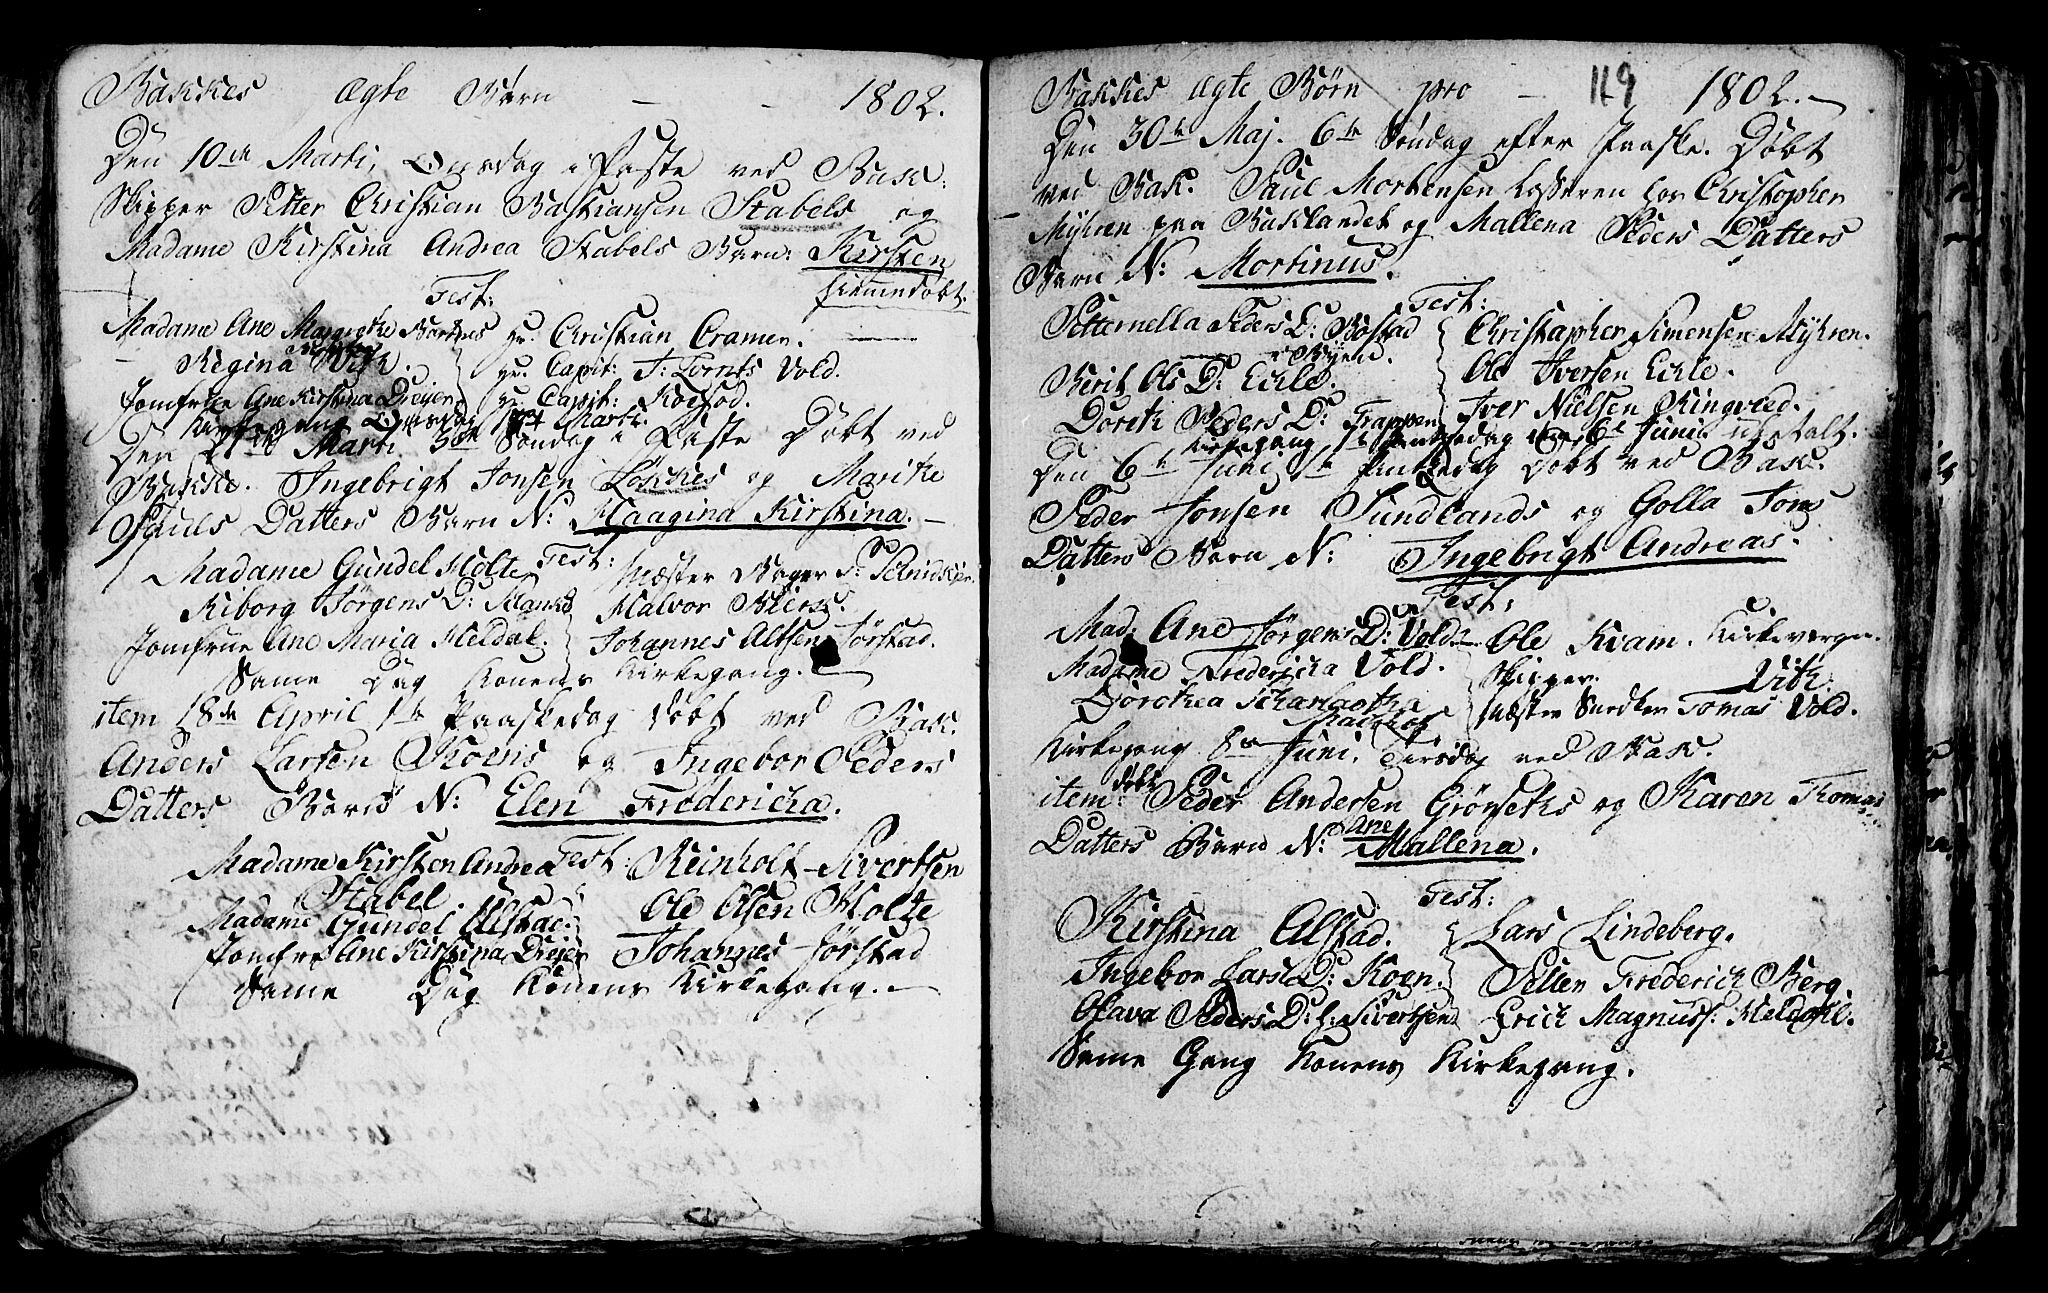 Bakkes ægte Børn - - 1802.
Den 10de Marti, Onsdag i Faste ved Bak:
Skipper Petter Christian Bastiansen Stabels og
Madame Kirstina Andrea Stabels Barn: Kirsten
hiemmedøbt.
Test:
Madame Ane Margrethe
Hr. Christian Cramer.
Regina
Hr. Capit: T: Lornts Vold.
Jomfrue Ane Kirstina Dreyer
Hr. Capit: Koefod.
Kirkegang Onsdag Marti.
Den 21de Marti 3de Søndag i Faste Døbt ved
Bakke. Ingebrigt Jonsen Løkkes og Marithe
Pauls Datters Barn N: Haagina Kirstina. -
Test:
Madame Gundel Holte
Mæster Bager
Kiborg Jørgens D:
Halvor
Jomfrue Ane Maria Heldal.
Johannes Altsen Jørstad.
Same Dag Konens Kirkegang.
item 18de April 1te Paaskedag Døbt ved Bak.
Anders Larsen Koens og Ingebor Peders
Datters Barn N: Elen Fredericha.
Test:
Madame Kirsten Andrea
Reinholt Sivertsen
Stabel.
Madame Gundel Alstad.
Ole Olsen Holte
Jomfr: Ane Kirstina Dreier
Johannes Jørstad
Same Dag Konens Kirkegang. -
Bakkes ægte Børn pro - 119 1802. -
Den 30te Maj. 6te Søndag efter Paaske. Døbt
ved Bak. Paul Mortensen hos Christopher
Myhren paa Baklandet og Mallena Peders Datters
Barn N: Mortinus.
Test:
Petternella Peders D: Bostad
Christopher Simensen Myhren.
i Byen.
Berit Ols D: Eckle.
Ole Iversen Eckle.
Doreth Peders D: Trappen
Iver Nielsen Ringveed.
Kirkegang 1te Pintzedag 6te Juni
Den 6te Juni 1te Pintzedag Døbt ved Bak.
Peder Jonsen Sundlands og Golla Jons
Datters Barn N: Ingebrigt Andreas.
Test:
Mad. Ane Jørgens D: Vold
Ole Kvam. Kirkeverge.
Madame Fredericha Vold.
Skipper Vith.
Dorothea Scharlotha
Mæster Snedker Tomas Vold.
Kirkegang 8de Juni. Tirsdag ved Bak.
item døbt Peder Andersen Grønseths og Karen Thomas
Datters Barn N: Ane Mallena.
Test:
Kirstina Alstad.
Lars Lindeberg.
Ingebor Lars D: Koen.
Petter Frederich Berg.
Olava Peders D: h: Sivertsen
Erich Magnuss: Heldahl.
Same Gang Konens Kirkegang.